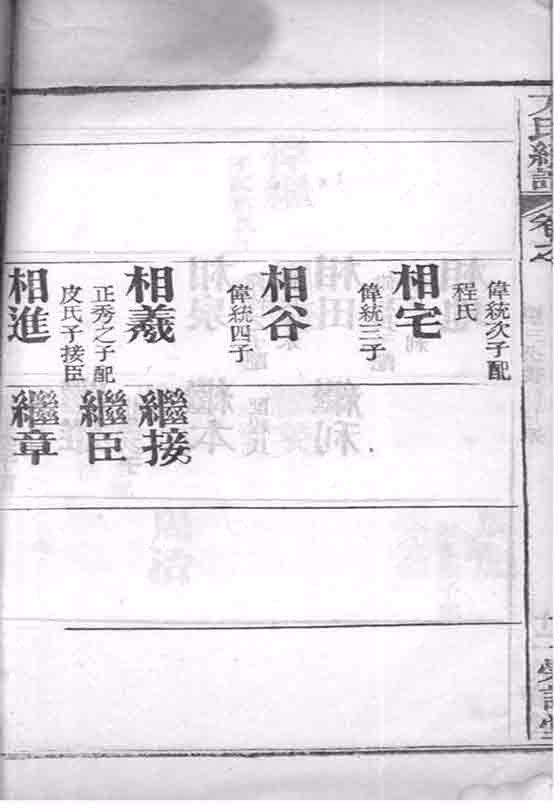 氏續譜
卷之
偉統次子配
程氏
相宅
偉統三子
相谷
偉統四子
相羲
正秀之子配
皮氏子接臣
相進
繼接
繼臣
繼章